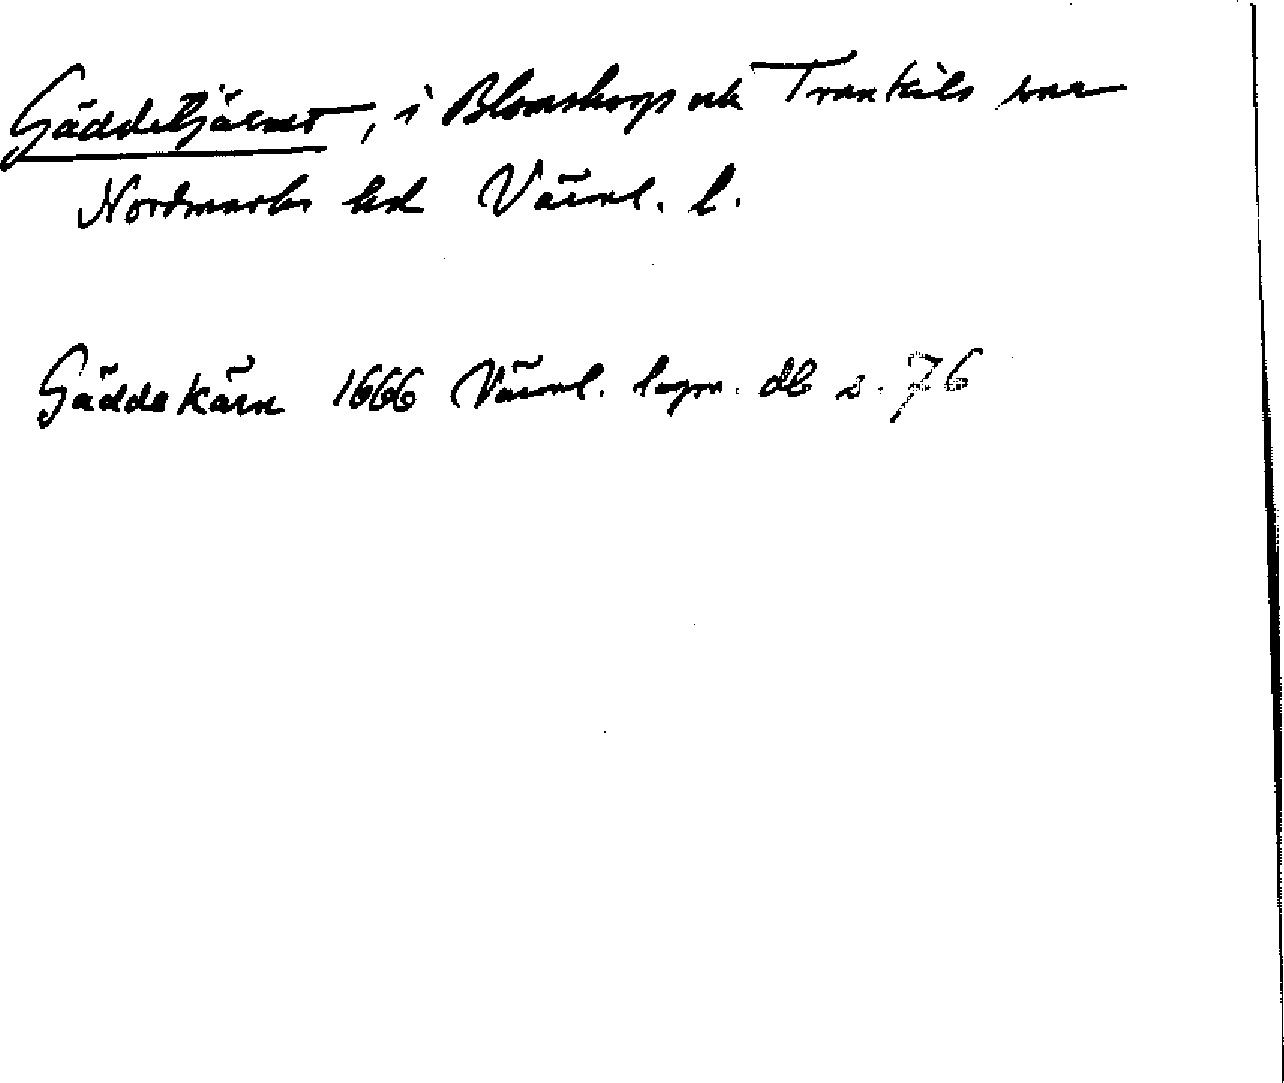 Gäddetjärnet, i Blomskogs och Trankils snr
Nordmarks hd Värml. l.
Gäddekärn 1666 Värml. lagm. db s. 76